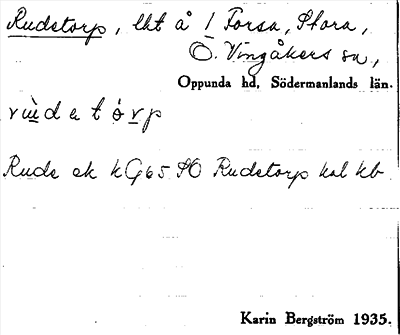 Rudetorp, lht å 1 Forsa, Stora,
Ö. Vingåkers sn,
Oppunda hd, Södermanlands län.
rùdetórp
Rude ek kG65SO Rudetorp hal kb
Karin Bergström 1935.